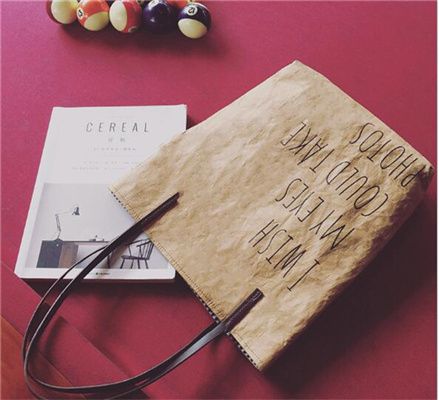 CEREAL
I WISH
MY EYES
COULD TAKE
PHOTOS